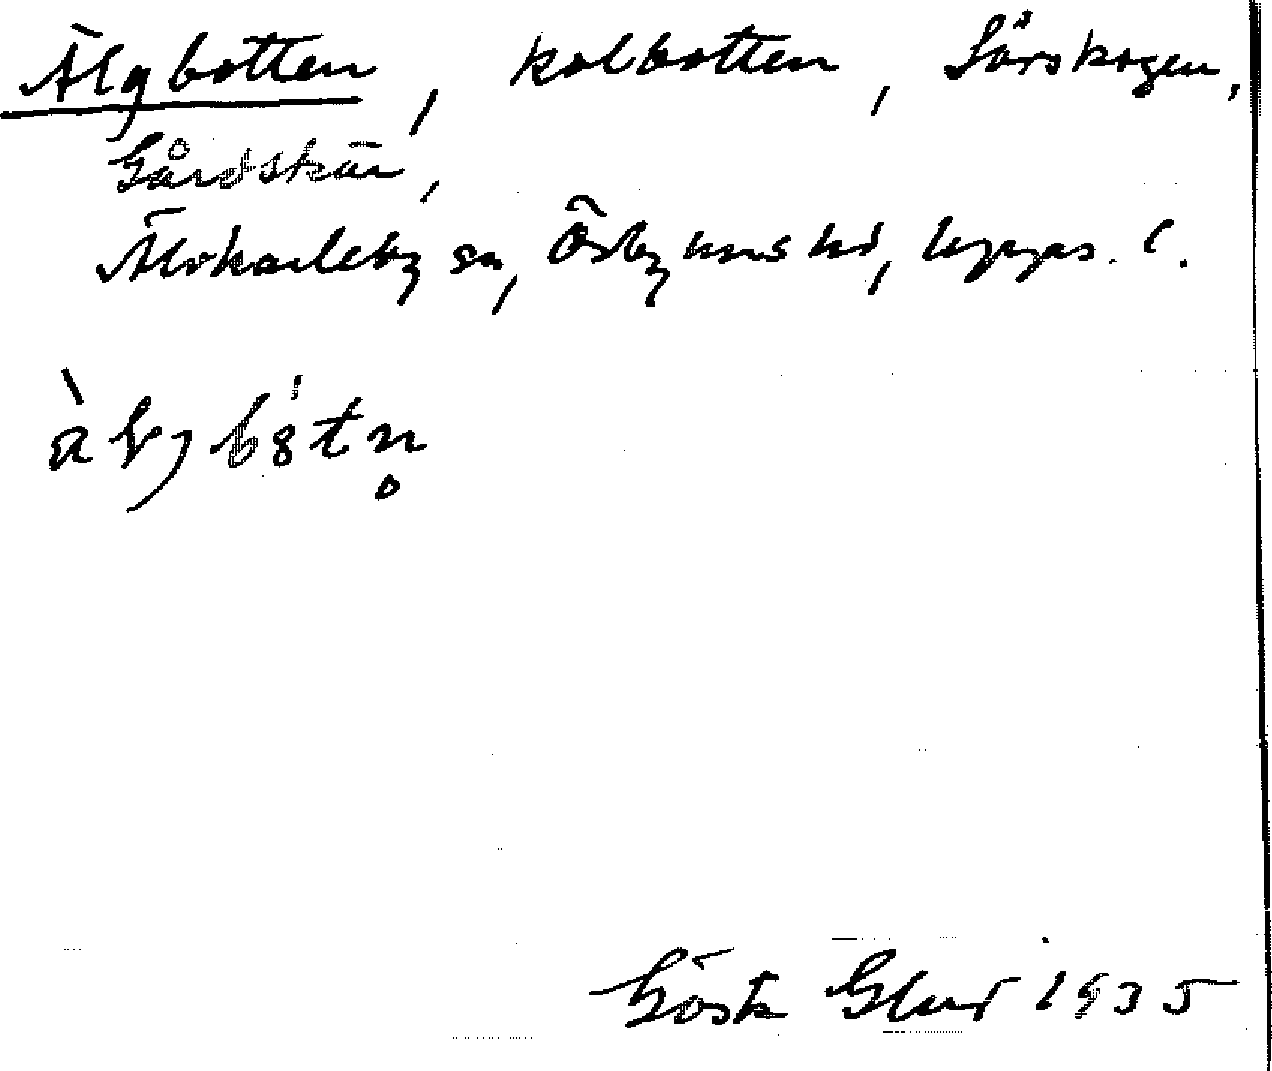 Älgbotten, kolbotten, Sårskogen,
Gårdskär,
Älvkarleby sn, Örbyhus hd, Upps. l.
Gösta Glud 1935